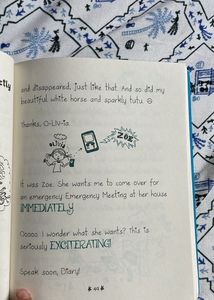 etly
and disappeared, just like that. And so did my
beautiful white horse and sparkly tutu. ☹
Thanks, O-LIV-ia.
OLIVIA
ZOE
It was Zoe. She wants me to come over for
an emergency Emergency Meeting at her house
IMMEDIATELY.
Ooooo. I wonder what she wants? This is
seriously EXCITERATING!
Speak soon, Diary!
* 44 *